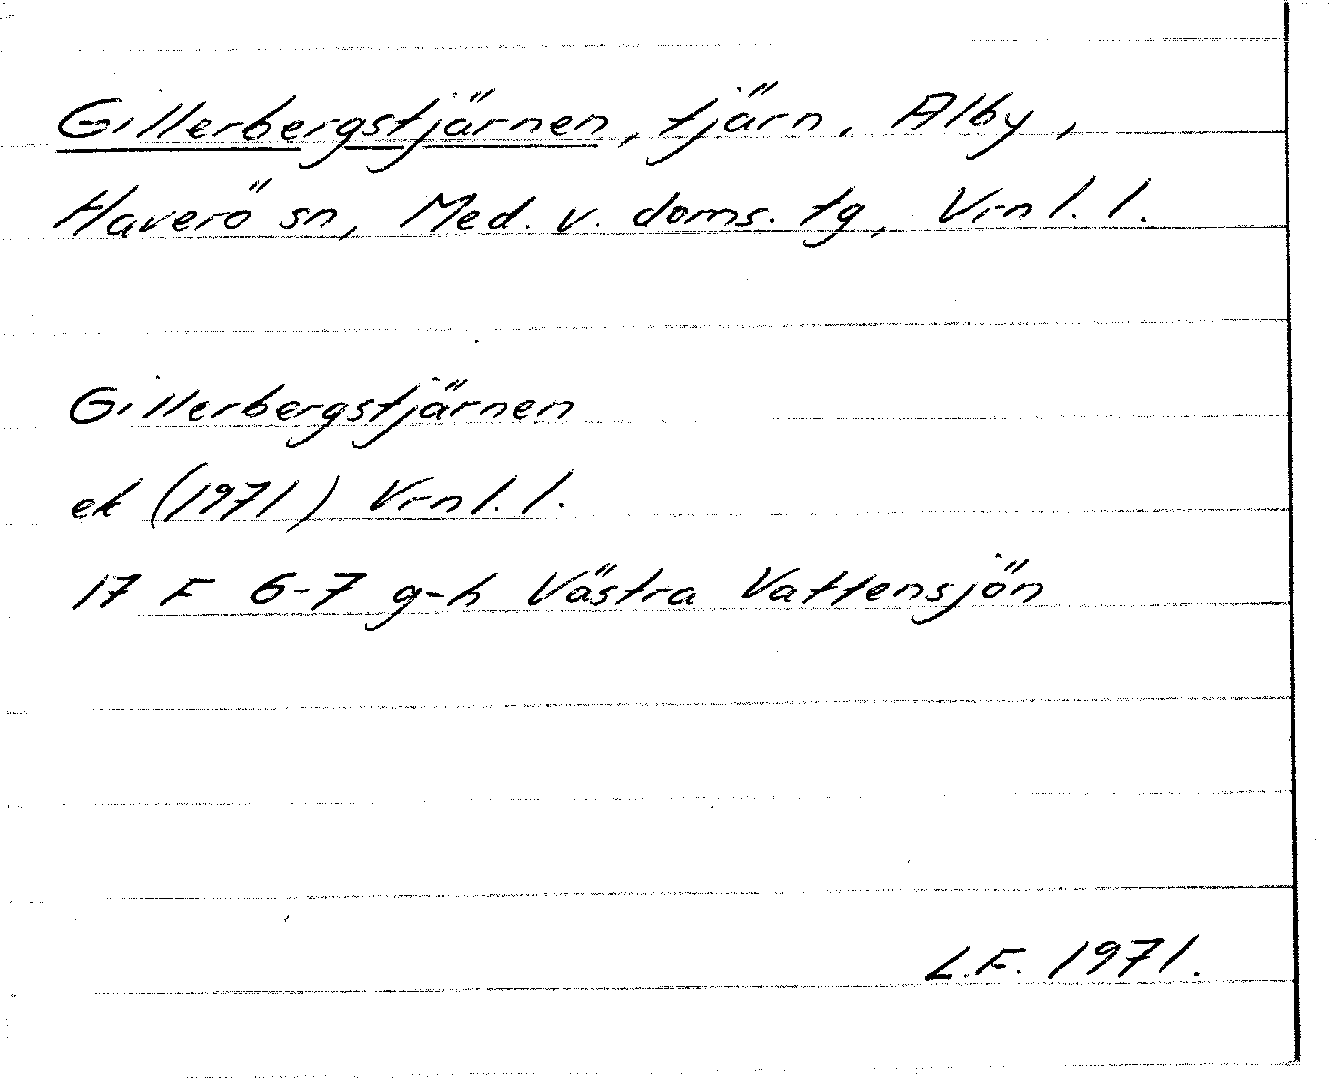 Gillerbergstjärnen, tjärn, Alby,
Haverö sn, Med. v. doms. tg, Vrnl. l.
Gillerbergstjärnen
ek (1971) Vrnl. l.
17 F 6-7 g-h Västra Vattensjön
L.F. 1971.